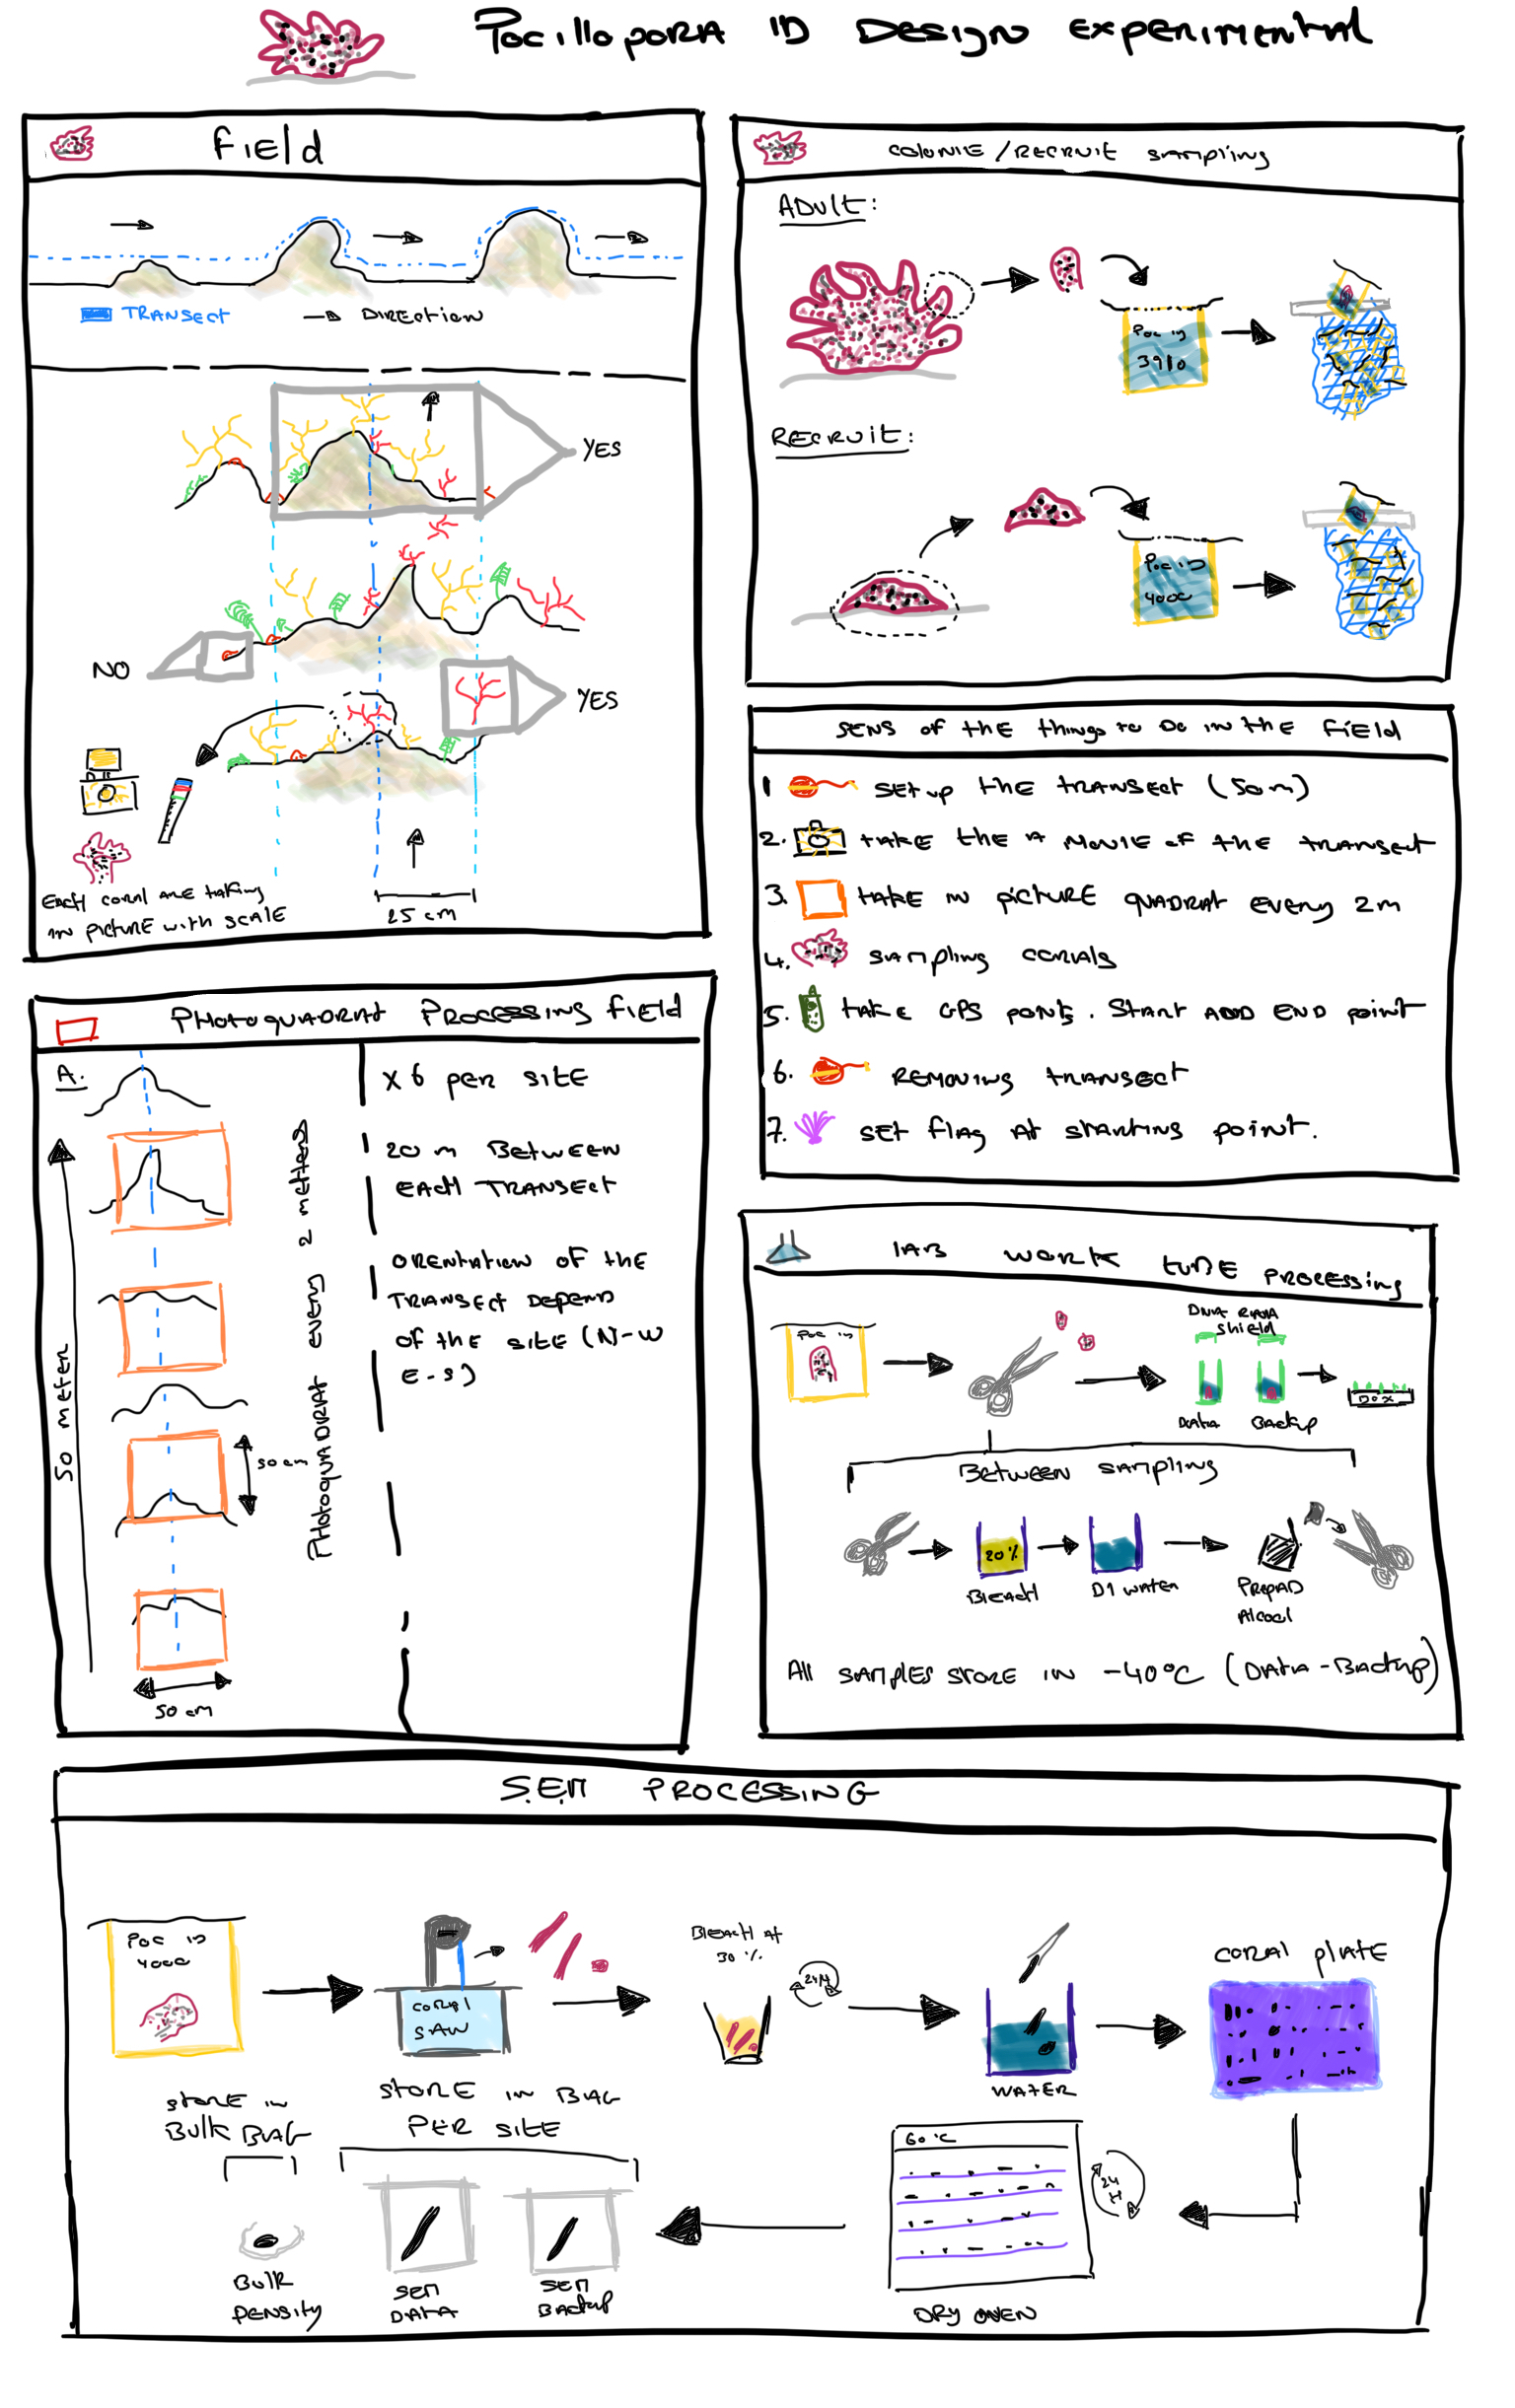 Pocillopora ID Designs experimental
Field
TRANSECT
DIRECTION
YES
NO
YES
EACH coral are taking
in picture with SCALE
25 cm
COLONIE / RECRUIT sampling
ADULT:
Poc ID
3910
RECRUIT:
Poc ID
4000
SENS of the things to Do in the FIELD
1 SET up the transect (50m)
2. TAKE the A MOVIE of the transect
3. TAKE in picture QUADRAT every 2m
4. sampling corals
5. TAKE GPS points. Start AND END point
6. REMOVING transect
7. SET flag At starting point.
PHOTOQUADRAT PROCESSING FIELD
A.
50 meter
50 cm
50 cm
PHOTOQUADRAT every 2 metters
X 6 per SITE
20 m BETWEEN
EACH TRANSECT
ORENTATION OF the
TRANSECT DEPEND
of the SITE (N-W
E-S)
LAB work tube PROCESSING
Poc ID
DNA RNA
shield
DATA
BACKUP
BOX
BETWEEN sampling
20%
BLEACH
DI WATER
PREPAD
Alcool
All SAMPLES STORE IN -40°C (DATA-BACKUP)
S.E.M PROCESSING
Poc ID
4000
coral
SAW
BLEACH At
30 %
24H
WATER
CORAL plate
STORE in
Bulk BAG
STORE IN BAG
PER SITE
60°C
24
H
Bulk
DENSITY
SEM
DATA
SEM
Backup
DRY OVEN